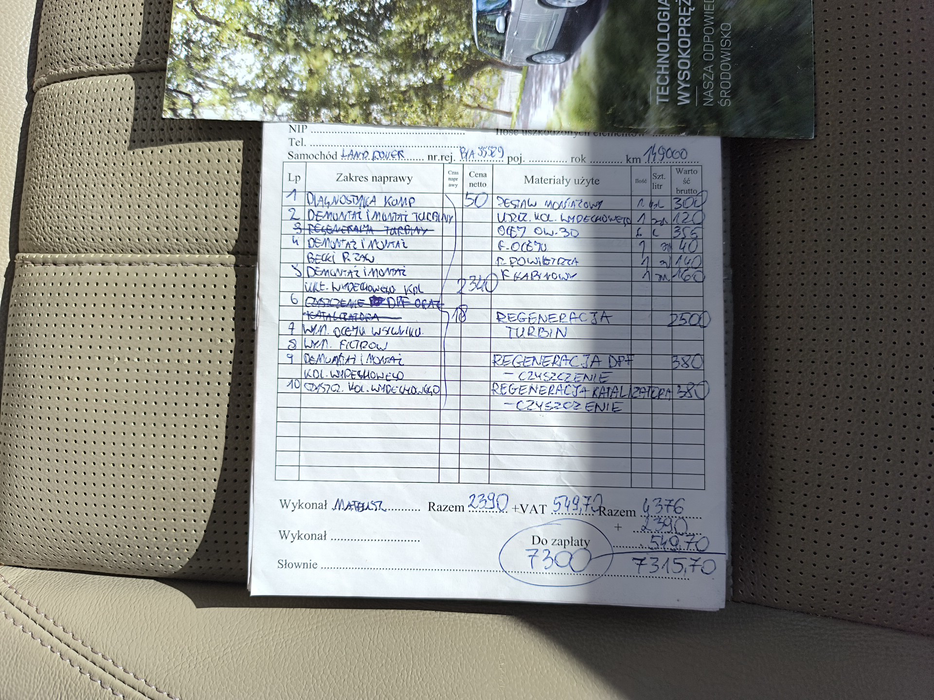 TECHNOLOGIA
WYSOKOPRĘŻ
NASZA ODPOWIED
ŚRODOWISKO
NIP
Tel.
Samochód LAND ROVER nr.rej. poj. rok km 149000
Lp Zakres naprawy Cena netto Materiały użyte Ilość Szt. litr Wartość brutto
1 DIAGNOSTYKA KOMP 50 ZESTAW MONTAŻOWY 1 300
2 DEMONTAŻ I MONTAŻ TURBINY USZCZ. KOL. WYDECHOWEGO 1 120
3 REGENERACJA TURBINY OLEJ 0W-30
4 DEMONTAŻ I MONTAŻ F. OLEJU 1 40
BELKI F. POWIETRZA 1 140
5 DEMONTAŻ I MONTAŻ F. KABINOWY 1 160
WYDECHOWEGO KOL 2340
6 CZYSZCZENIE DPF ORAZ
KATALIZATORA 18 REGENERACJA 2500
7 WYM. OLEJU W SILNIKU TURBIN
8 WYM. FILTRÓW
9 DEMONTAŻ I MONTAŻ REGENERACJA DPF 380
KOL. WYDECHOWEGO – CZYSZCZENIE
10 CZYSZCZ. KOL. WYDECHOWEGO REGENERACJA KATALIZATORA 380
– CZYSZCZENIE
Wykonał MATEUSZ Razem 2390 +VAT 549,70 Razem 4376
+ 2390
Wykonał Do zapłaty 549,70
Słownie 7300 7315,70